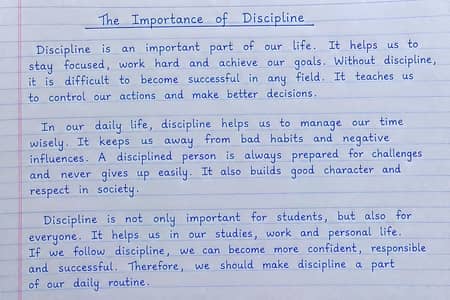 The Importance of Discipline
Discipline is an important part of our life. It helps us to
stay focused, work hard and achieve our goals. Without discipline,
it is difficult to become successful in any field. It teaches us
to control our actions and make better decisions.
In our daily life, discipline helps us to manage our time
wisely. It keeps us away from bad habits and negative
influences. A disciplined person is always prepared for challenges
and never gives up easily. It also builds good character and
respect in society.
Discipline is not only important for students, but also for
everyone. It helps us in our studies, work and personal life.
If we follow discipline, we can become more confident, responsible
and successful. Therefore, we should make discipline a part
of our daily routine.